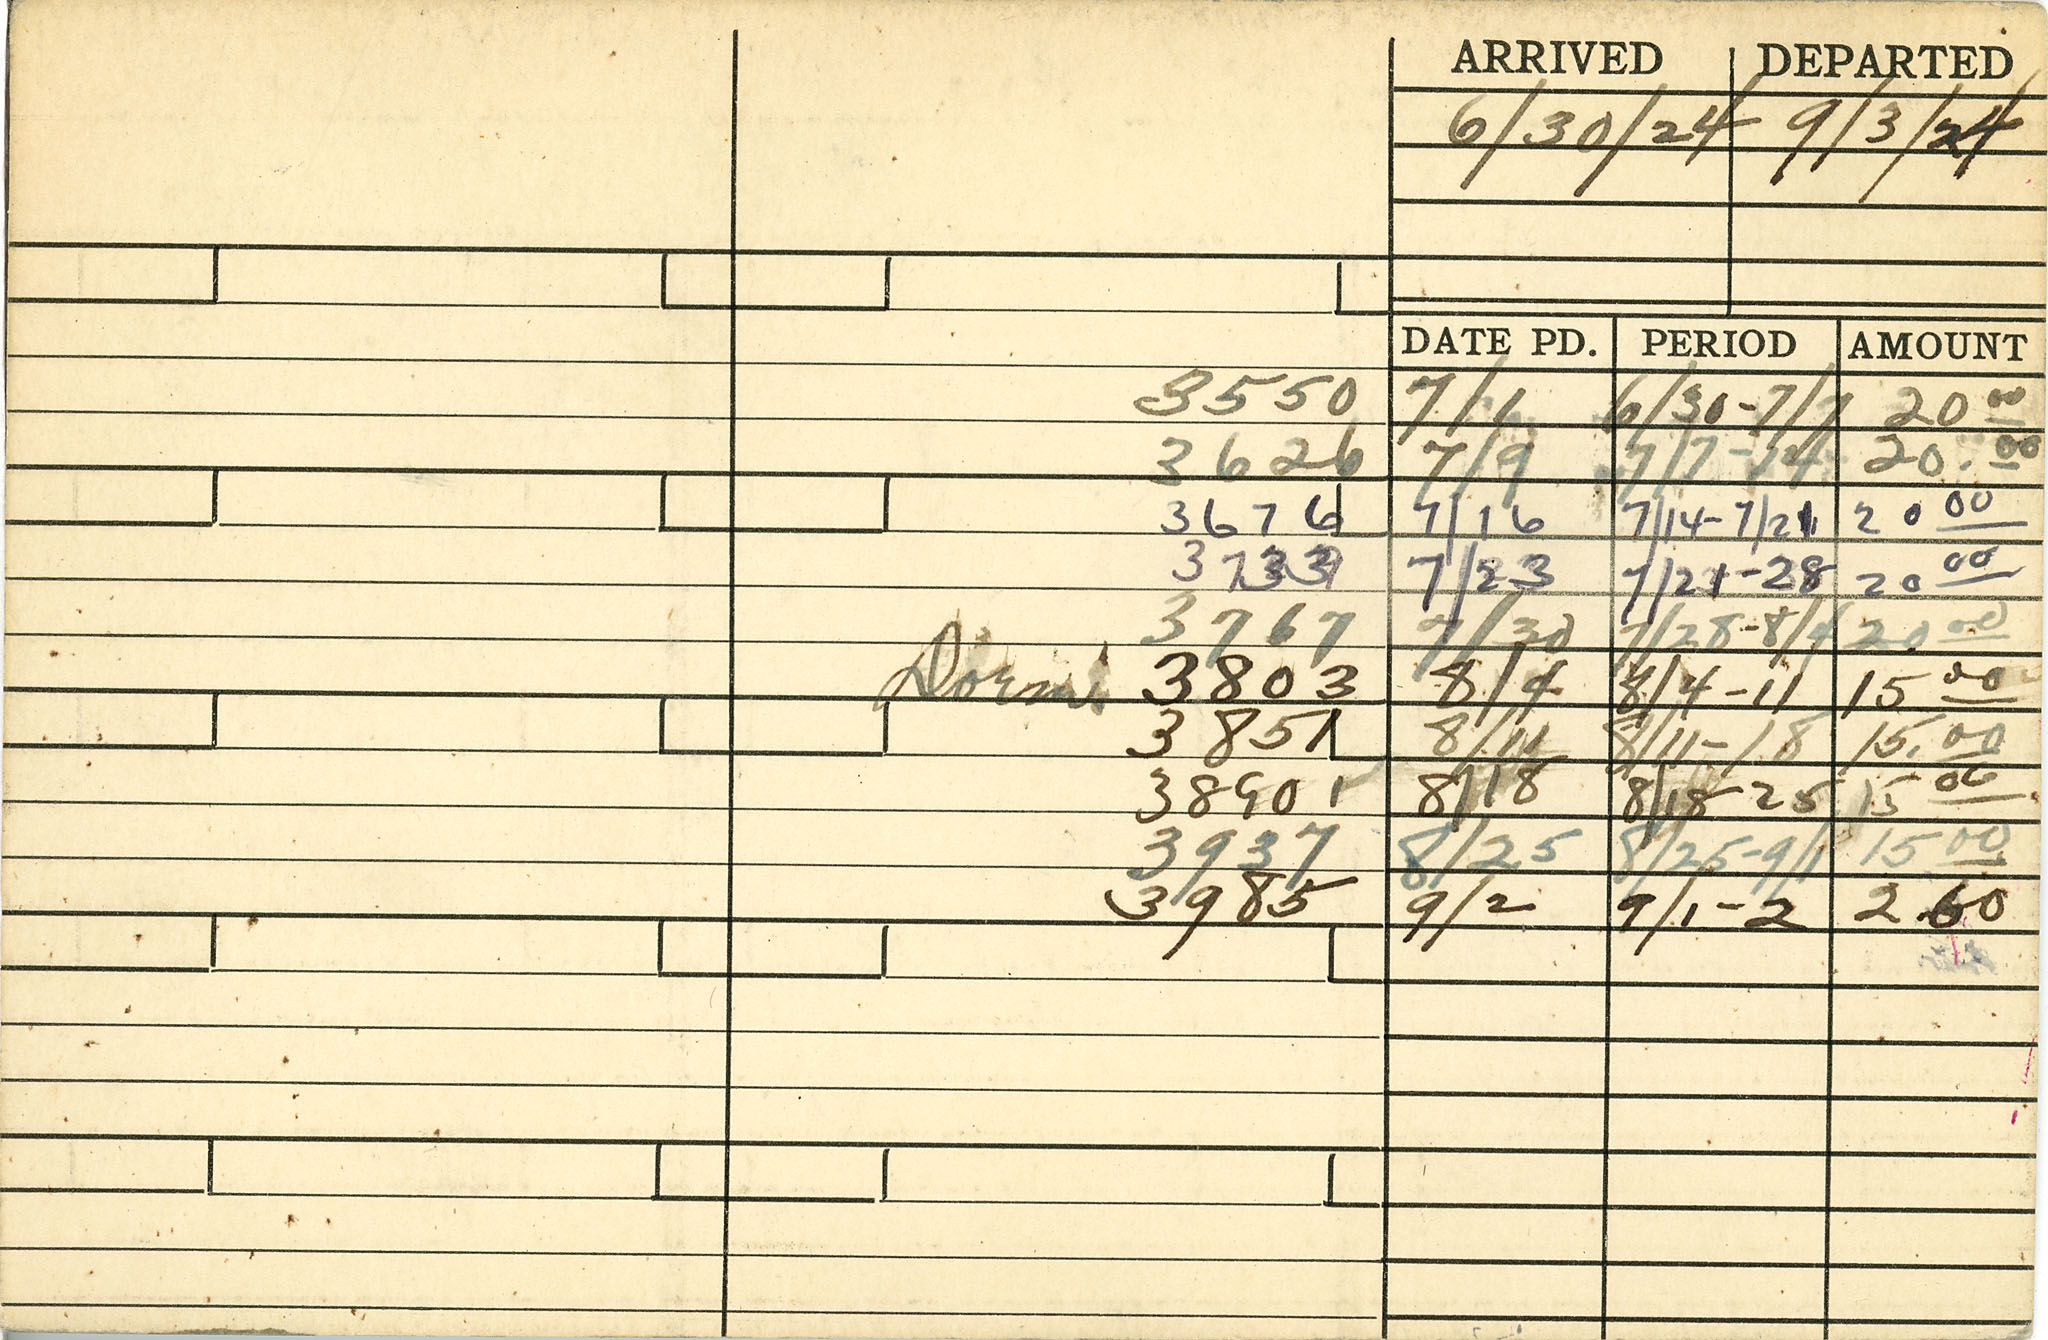 ARRIVED DEPARTED
6/30/24 9/3/24
DATE PD. PERIOD AMOUNT
3550 7/1 6/30-7/7 20 00
3626 7/9 7/7-14 20.00
3676 7/16 7/14-7/21 20 00
7/23 7/21-28 20 00
3767 7/30 7/28-8/4 20 00
Dorm. 3803 8/4 8/4-11 15 00
3851 8/11 8/11-18 15.00
3890 8/18 8/18-25 15 00
3937 8/25 8/25-9/1 15 00
3985 9/2 9/1-2 2 60